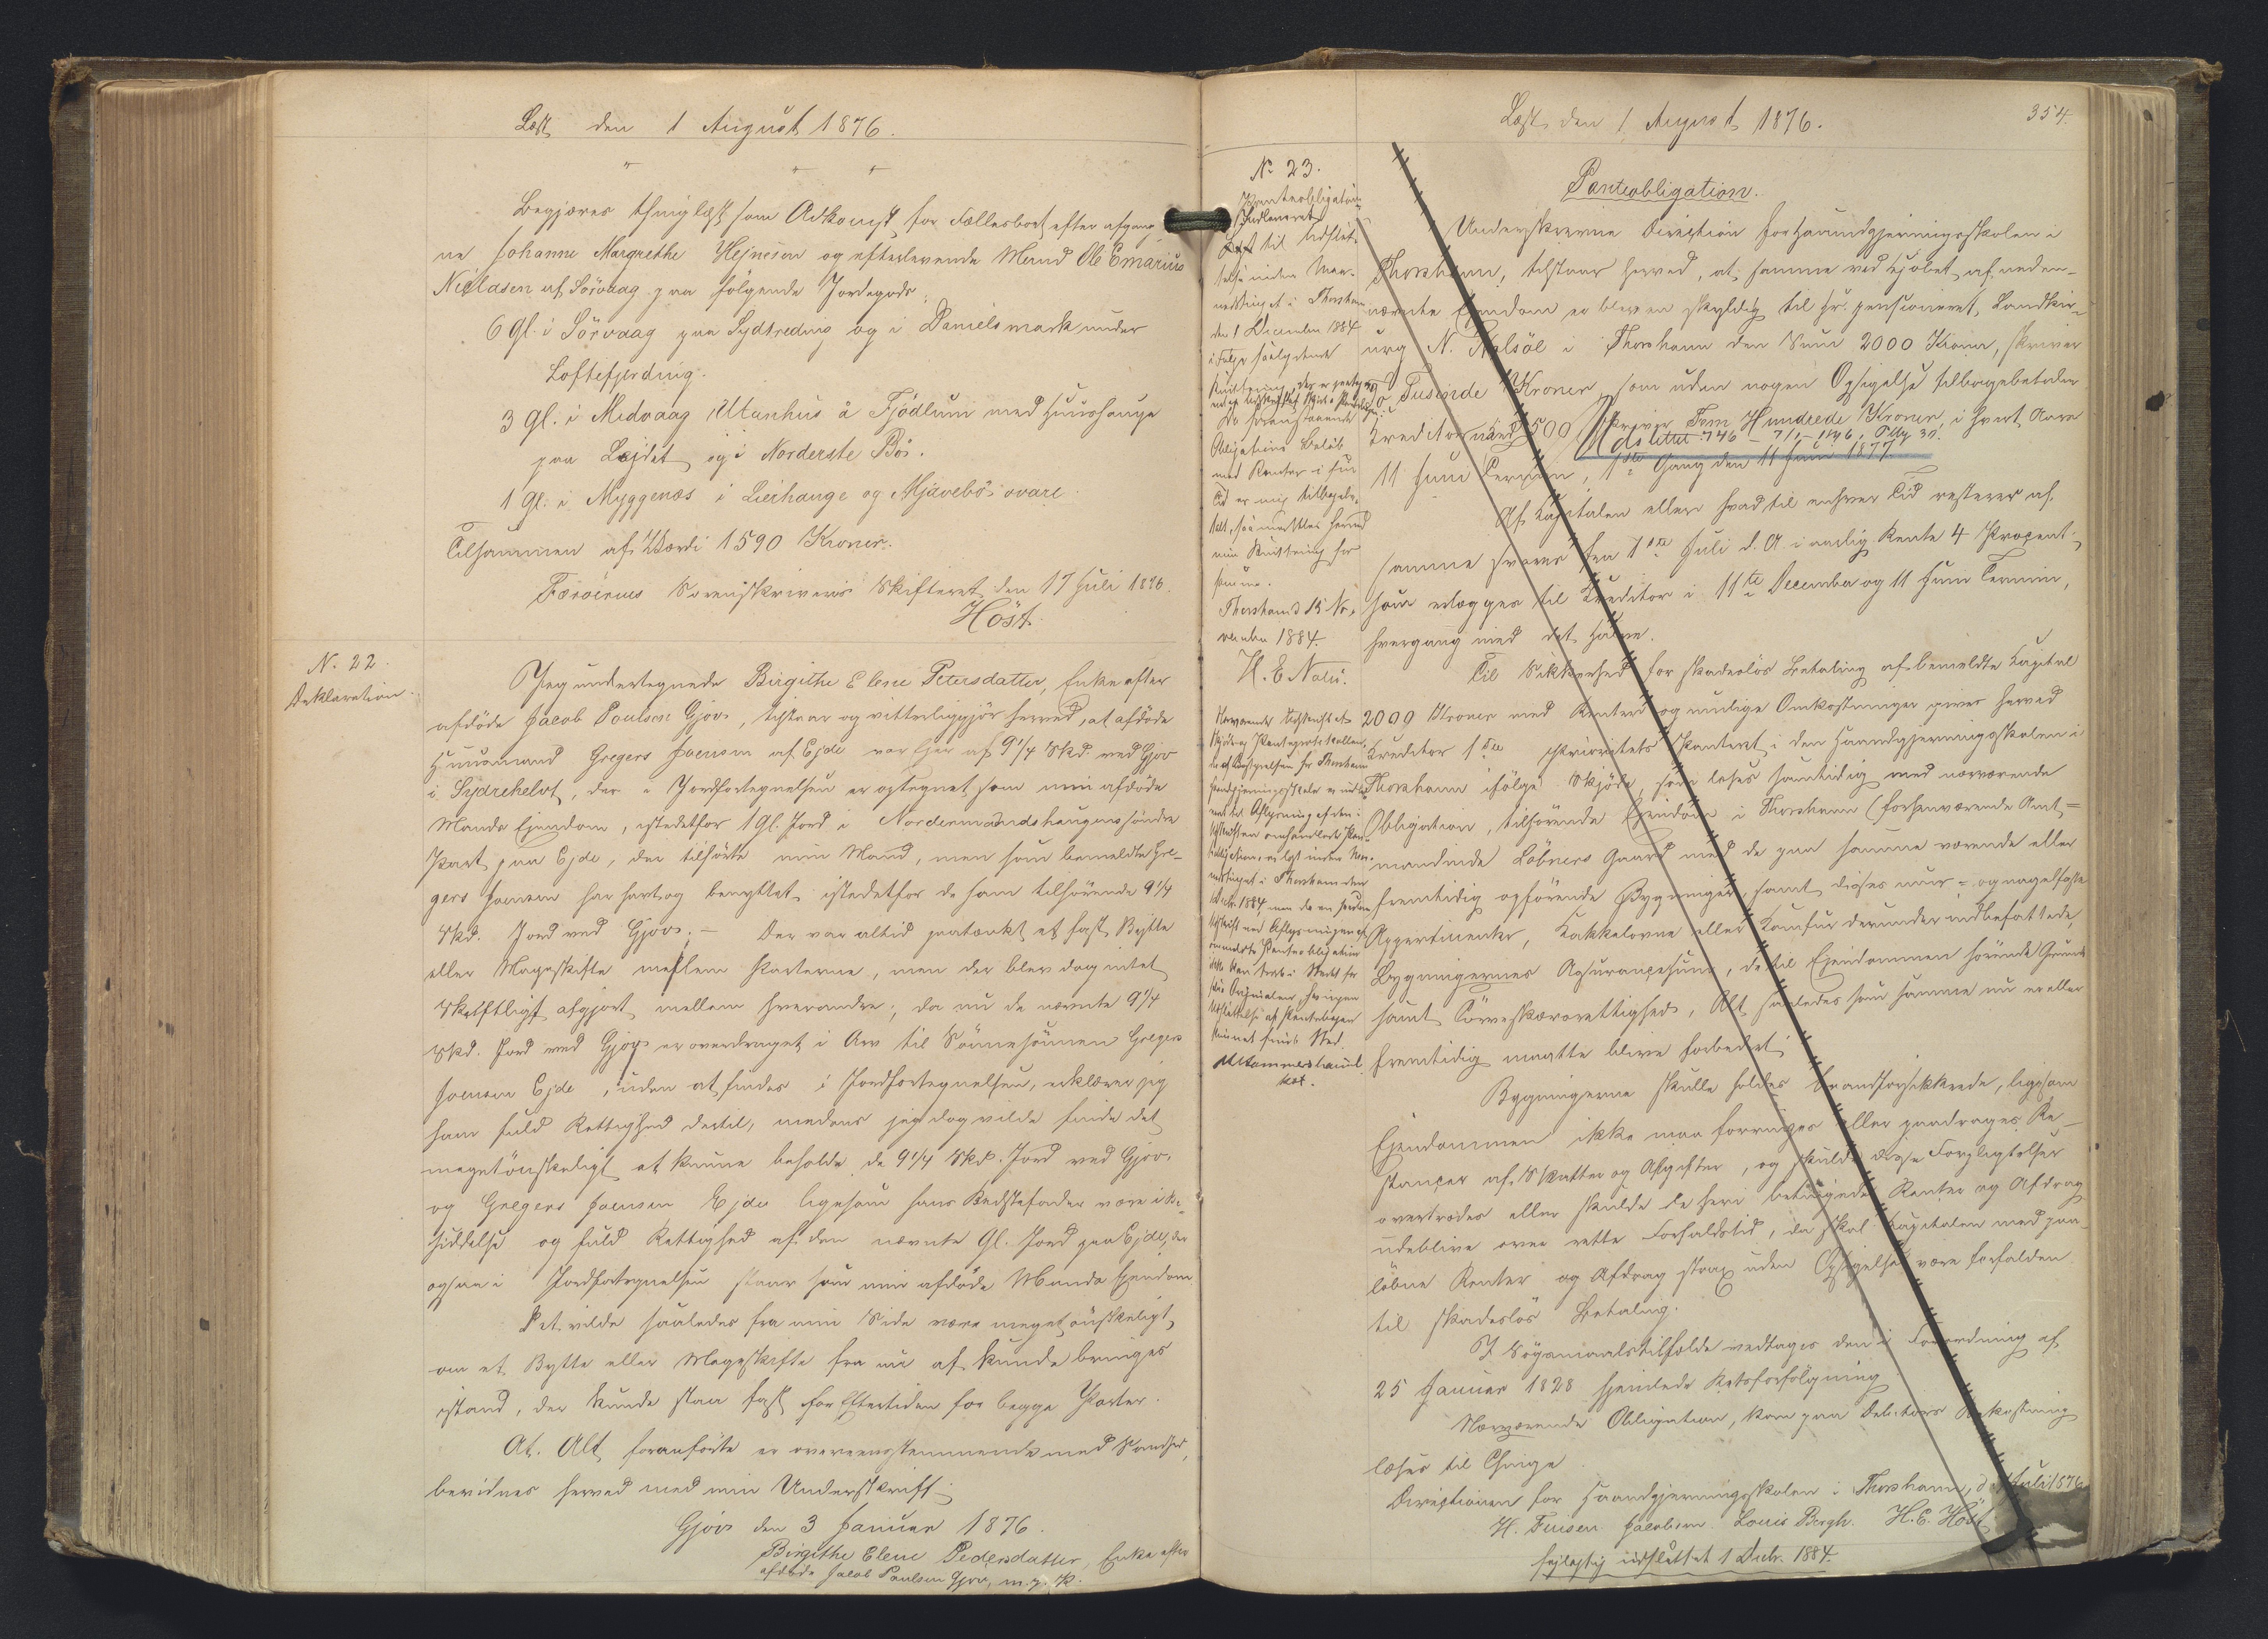 Læst den 1 August 1876.
" " "
Begjæres thinglæst som Adkomst for Fællesboet efter afgang-
ne Johanne Margrethe Hejneson og efterlevende Mand Ole Emarius
Niclasen af Sörvaag paa følgende Jordegods:
6 Gl. i Sörvaag paa Sydtreding og i Danielsmark under
Loftefjerding.
3 Gl. i Midvaag Utanhus à Fjödlum med Huushauge
paa Lajdet og i Norderste Bö.
1 Gl. i Myggenæs i Lierhauge og Mjavebö ovare
Tilsammen af Værdi 1590 Kroner.
Færöernes Sorenskriveris Skifteret den 17 Juli 1876.
Höst.
N. 22.
Deklaration.
Jeg undertegnede Birgithe Elene Petersdatter, Enke efter
afdöde Jacob Poulsen Gjov, tilstaar og vitterliggjör herved, at afdöde
Huusmand Gregers Joensen af Ejde var Ejer af 9 1/4 Skd. ved Gjov
i Sydrehelvt, der i Jordfortegnelsen er optegnet som min afdöde
Mands Ejendom, istedetfor 1 Gl. Jord i Nordermandshaugens söndre
Part paa Ejde, der tilhörte min Mand, men som bemeldte Gre-
gers Joensen har havt og benyttet istedetfor de ham tilhörende 9 1/4
Skd. Jord ved Gjov. – Der var altid paatænkt et fast Bytte
eller Mageskifte mellem Parterne, men der blev dog intet
skriftligt afgjort mellem hverandre; da nu de nævnte 9 1/4
Skd. Jord ved Gjov er overdraget i Arv til Sönnesönnen Gregers
Joensen Ejde, uden at findes i Jordfortegnelsen, erklærer jeg
ham fuld Rettighed dertil, medens jeg dog vilde finde det
meget önskeligt at kunne beholde de 9 1/4 Skd. Jord ved Gjov,
og Gregers Joensen Ejde ligesom hans Bedstefader være i Be-
siddelse og fuld Rettighed af den nævnte Gl. Jord paa Ejde, der
ogsaa i Jordfortegnelsen staar som min afdöde Mands Ejendom
Det vilde saaledes fra min Side være meget önskeligt,
om et Bytte eller Mageskifte fra nu af kunde bringes
istand, der kunde staa fast for Eftertiden for begge Parter.
At Alt foranförte er overeensstemmende med Sandhed,
bevidnes herved med min Underskrift.
Gjov den 3 Januar 1876.
Birgithe Elene Pedersdatter, Enke efter
afdöde Jacob Paulsen Gjov, m. p. P.
Læst den 1 August 1876.
354.
No 23.
Panteobligation
Læst til Udslet-
telse inden Maa-
nedstinget i Thorshavn
den 1 December 1884
i Følge saalydende
Da foranstaaende
Obligations Beløb
med Renter i sin
Tid er mig tilbagebe-
talt, saa meddeles herved
min Qvittering for
samme.
Thorshavn d. 15 No-
vember 1884.
H. E. Nolsö.
Panteobligation.
Underskrevne Direction for Haandgjerningsskolen i
Thorshavn, tilstaar herved, at samme ved Kjöbet af neden-
nævnte Ejendom er bleven skyldig til Hr. pensioneret Landkir-
urg N. Nolsöe i Thorshavn den Sum 2000 Kroner, skriver
To Tusinde Kroner, som uden nogen Opsigelse tilbagebetales
Kreditor med 500 Skriver Fem Hundrede Kroner, i hvert Aars
Udslettet 746 – 7/1 – 1896. Pbg 30.
11 Juni Termin, 1ste Gang den 11 Juni 1877.
Af Kapitalen eller hvad til enhver Tid resterer af
samme svares fra 1ste Juli d. A. i aarlig Rente 4 Procent
som erlægges til Kreditor i 11te December og 11 Juni Termin,
hvergang med det Halve.
Til Sikkerhed for skadeslös Betaling af bemeldte Kapital
2000 Kroner med Renter og mulige Omkostninger gives herved
Kreditor 1ste Prioritets Panteret i den Haandgjerningsskolen i
Thorshavn ifölge Skjöde, som læses samtidig med nærværende
Obligation, tilhörende Ejendom i Thorshavn (forhenværende Amt-
mandinde Löbners Gaard med de paa samme værende eller
fremtidig opförende Bygninger, samt disses muur- og nagelfaste
Appertinentier, Kakkelovne eller Komfur derunder indbefattede,
Bygningernes Assurancesum, de til Ejendommen hörende Grunde
samt Törveskærsrettighed, Alt saaledes som samme nu er eller
fremtidig maatte blive forbedret.
Bygningerne skulle holdes brandforsikkrede, ligesom
Ejendommen ikke maa forringes eller paadrages Re-
stancer af Skatter og Afgifter, og skulde disse Forpligtelser
overtrædes eller skulde de heri betingede Renter og Afdrag
udeblive over rette Forfaldstid, da skal Kapitalen med paa-
löbne Renter og Afdrag strax uden Opsigelse være forfalden
til skadeslös Betaling.
I Sögsmaalstilfælde vedtages den i Forordning af
25 Januar 1828 hjemlede Retsforfölgning
Nærværende Obligation, kan paa Debitors Bekostning
læses til Thinge
Directionen for Haandgjerningsskolen i Thorshavn, d. 1 Juli 1876
H. Finsen Jacobsen. Louis Bergh. H. C. Höst
fejlagtig udslettet 1 Decbr. 1884.